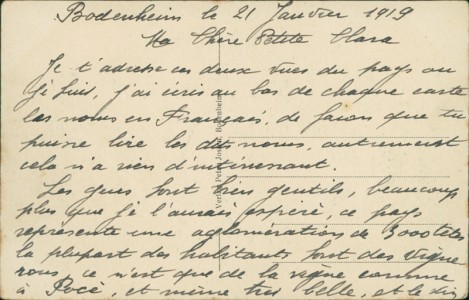 Bodenheim le 21 Janvier 1919
Ma Chère Petite Clara
Je t'adresse ces deux vues du pays ou
je suis, j'ai écris au bas de chaque carte
les noms en Français, de façon que tu
puisse lire les dits noms, autrement
cela n'a rien d'intéressant.
Les gens sont bien gentils, beaucoup
plus que je l'aurais espéré, ce pays
représente une agglomération de 3000 têtes
la plupart des habitants sont des vigne
rons, ce n'est que de la vigne comme
à Pocé, et même très belle, et le
Verlag Peter Bodenheim